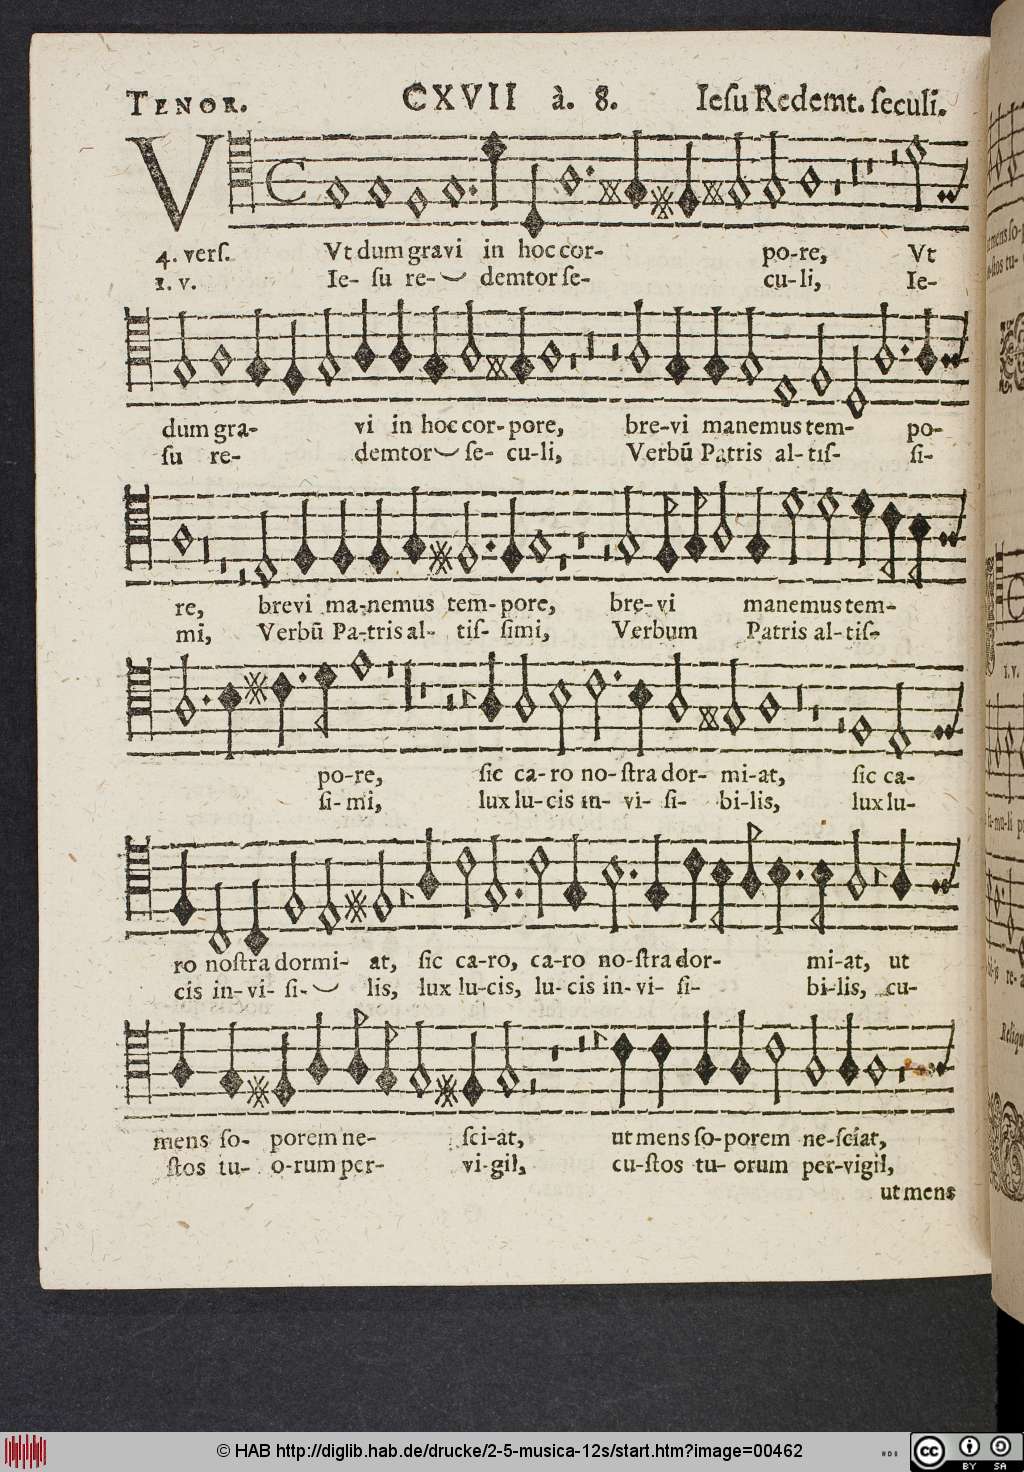 TENOR. CXVII à. 8. Iesu Redemt. seculi.
4. vers. Vt dum gravi in hoc cor- po-re, Vt
1. v. Ie- su re- demtor se- cu-li, Ie-
dum gra- vi in hoc cor- pore, bre-vi manemus tem- po-
su re- demtor se- cu-li, Verbū Patris al-tis- si-
re, brevi ma-nemus tem-pore, bre-vi manemus tem-
mi, Verbū Pa-tris al- tis- simi, Verbum Patris al-tis-
po-re, sic ca-ro no-stra dor- mi-at, sic ca-
si-mi, lux lu-cis in- vi- si- bi-lis, lux lu-
ro nostra dormi- at, sic ca-ro, ca-ro no-stra dor- mi-at, ut
cis in-vi- si- lis, lux lu-cis, lu-cis in-vi- si- bi-lis, cu-
mens so- porem ne- sci-at, ut mens so-porem ne-sciat,
stos tu- o-rum per- vi-gil, cu-stos tu- orum per-vigil,
ut mens
© HAB http://diglib.hab.de/drucke/2-5-musica-12s/start.htm?image=00462
cc BY SA